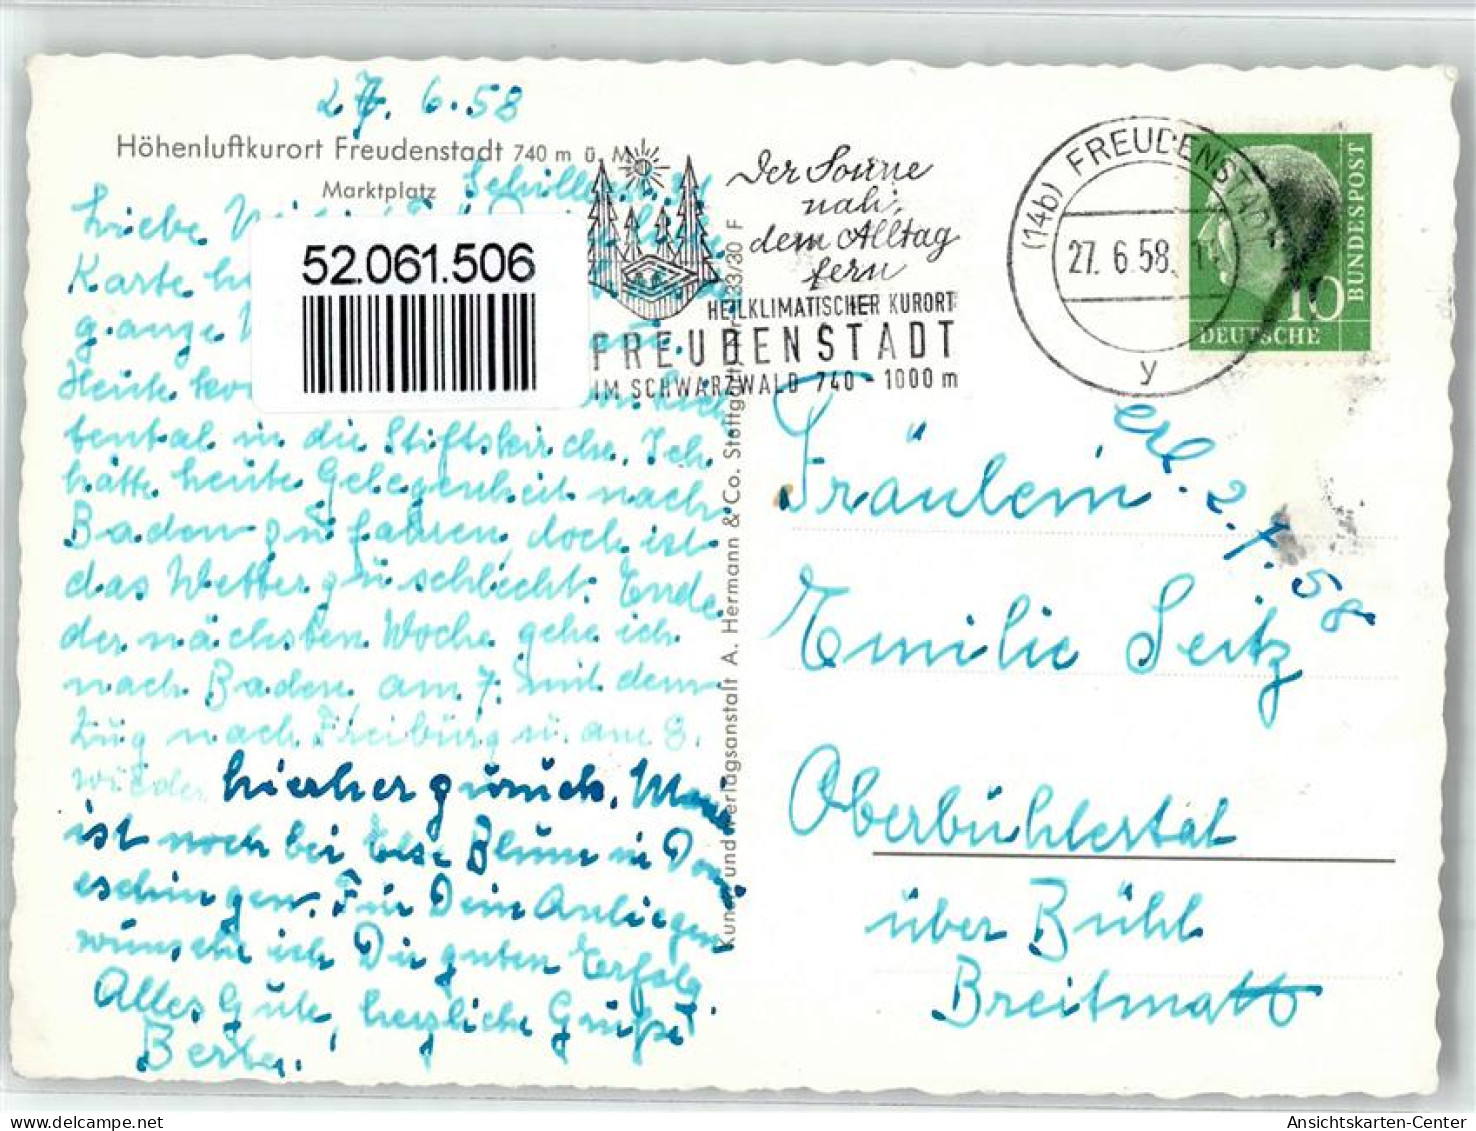 27. 6. 58
Höhenluftkurort Freudenstadt 740 m ü. M.
Marktplatz
Liebe
Karte
ganze
Heute
tental in die Stiftskirche. Ich
hätte heute Gelegenheit nach
Baden zu fahren, doch ist
das Wetter zu schlecht. Ende
der nächsten Woche gehe ich
nach Baden, am 7. mit dem
Zug nach Freiburg u. am 8.
wieder hierher zurück.
ist noch bei Else Blum in Don
eschingen. Für Dein Anliegen
wünsche ich Dir guten Erfolg.
Alles Gute, herzliche Grüße
52.061.506
Der Sonne
nah,
dem Alltag
fern
HEILKLIMATISCHER KURORT
FREUDENSTADT
IM SCHWARZWALD 740 - 1000 m
Kunst- und Verlagsanstalt A. Hermann & Co. Stuttgart
33/30 F
(14b) FREUDENSTADT
27. 6. 58.
y
10
DEUTSCHE
BUNDESPOST
erl. 2. 7. 58
Fräulein
Emilie Seitz
Oberbühlertal
über Bühl
Breitmatt
Ansichtskarten-Center